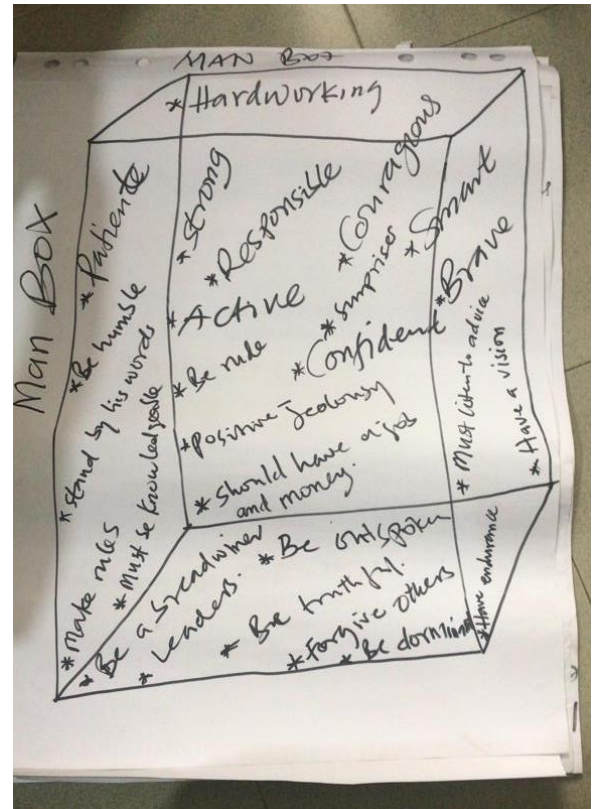 MAN BOX
Man Box
* Hardworking
* Strong
* Responsible
* Couragious
* Smart
* surpriser
* Brave
* Active
* Confident
* Be rude
* positive Jealousy
* should have a job
and money.
* Patiente
* Be humble
* stand by his words
* Must be knowledgeable
* make rules
* Must listen to advice
* Have a vision
* Have endurance
* Be a breadwiner
* Leaders.
* Be outspoken
* Be truthful.
* Forgive others
* Be dorminat